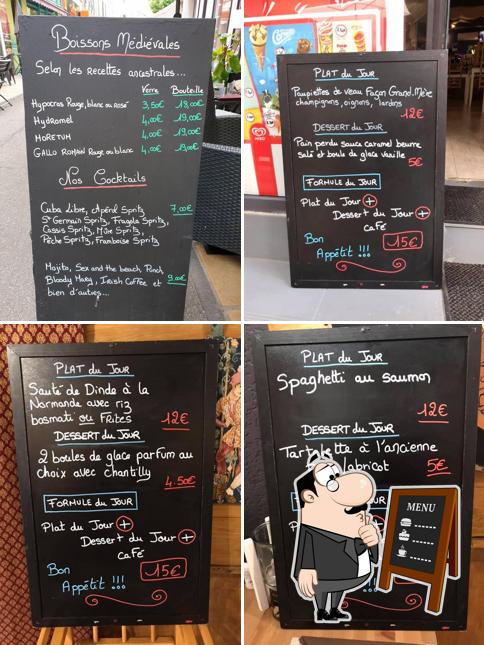 Boissons Médiévales
Selon les recettes ancestrales...
Verre Bouteille
Hypocras Rouge, blanc ou rosé 3,50€ 18,00€
Hydromel 4,00€ 19,00€
MORETUM 4,00€ 19,00€
GALLO ROMAIN Rouge ou blanc 4,00€ 19,00€
Nos Cocktails
Cuba libre, Apérol Spritz 7,00€
St Germain Spritz, Fragola Spritz,
Cassis Spritz, Mûre Spritz,
Pêche Spritz, Framboise Spritz
Mojito, Sex and the beach, Punch,
Bloody Mary, Irish Coffee et 9.00€
bien d'autres...
PLAT du JOUR
Paupiettes de veau Façon Grand-Mère
champignons, oignons, lardons
12€
DESSERT du JOUR
Pain perdu sauce caramel beurre
salé et boule de glace vanille
5€
FORMULE du JOUR
Plat du Jour +
Dessert du Jour +
café
Bon
Appétit !!! 15€
PLAT du JOUR
Sauté de Dinde à la
Normande avec riz
basmati ou FRites 12€
DESSERT du JOUR
2 boules de glace parfum au
choix avec chantilly
4.50€
FORMULE du JOUR
Plat du Jour +
Dessert du Jour +
café
Bon 15€
Appétit !!!
PLAT du JOUR
Spaghetti au saumon
12€
DESSERT du JOUR
Tartelette à l'ancienne
abricot 5€
MENU